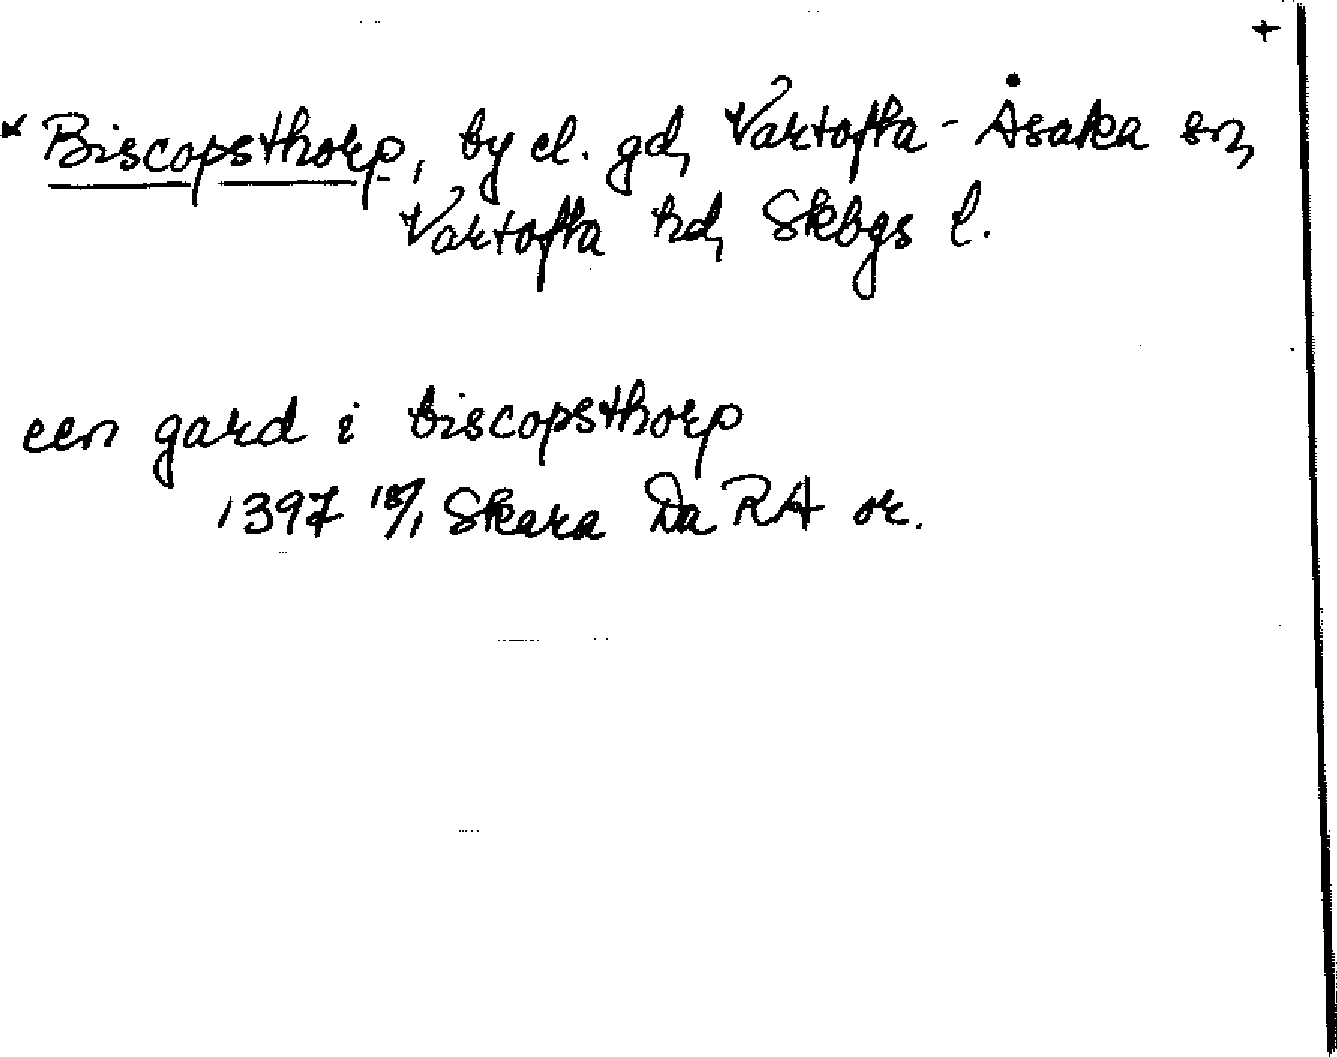 +
* Biscopsthorp, by el. gd, Vartofta-Åsaka sn,
Vartofta hd, Skbgs l.
een gard i biscopsthorp
1397 18/1 Skara Da RA or.